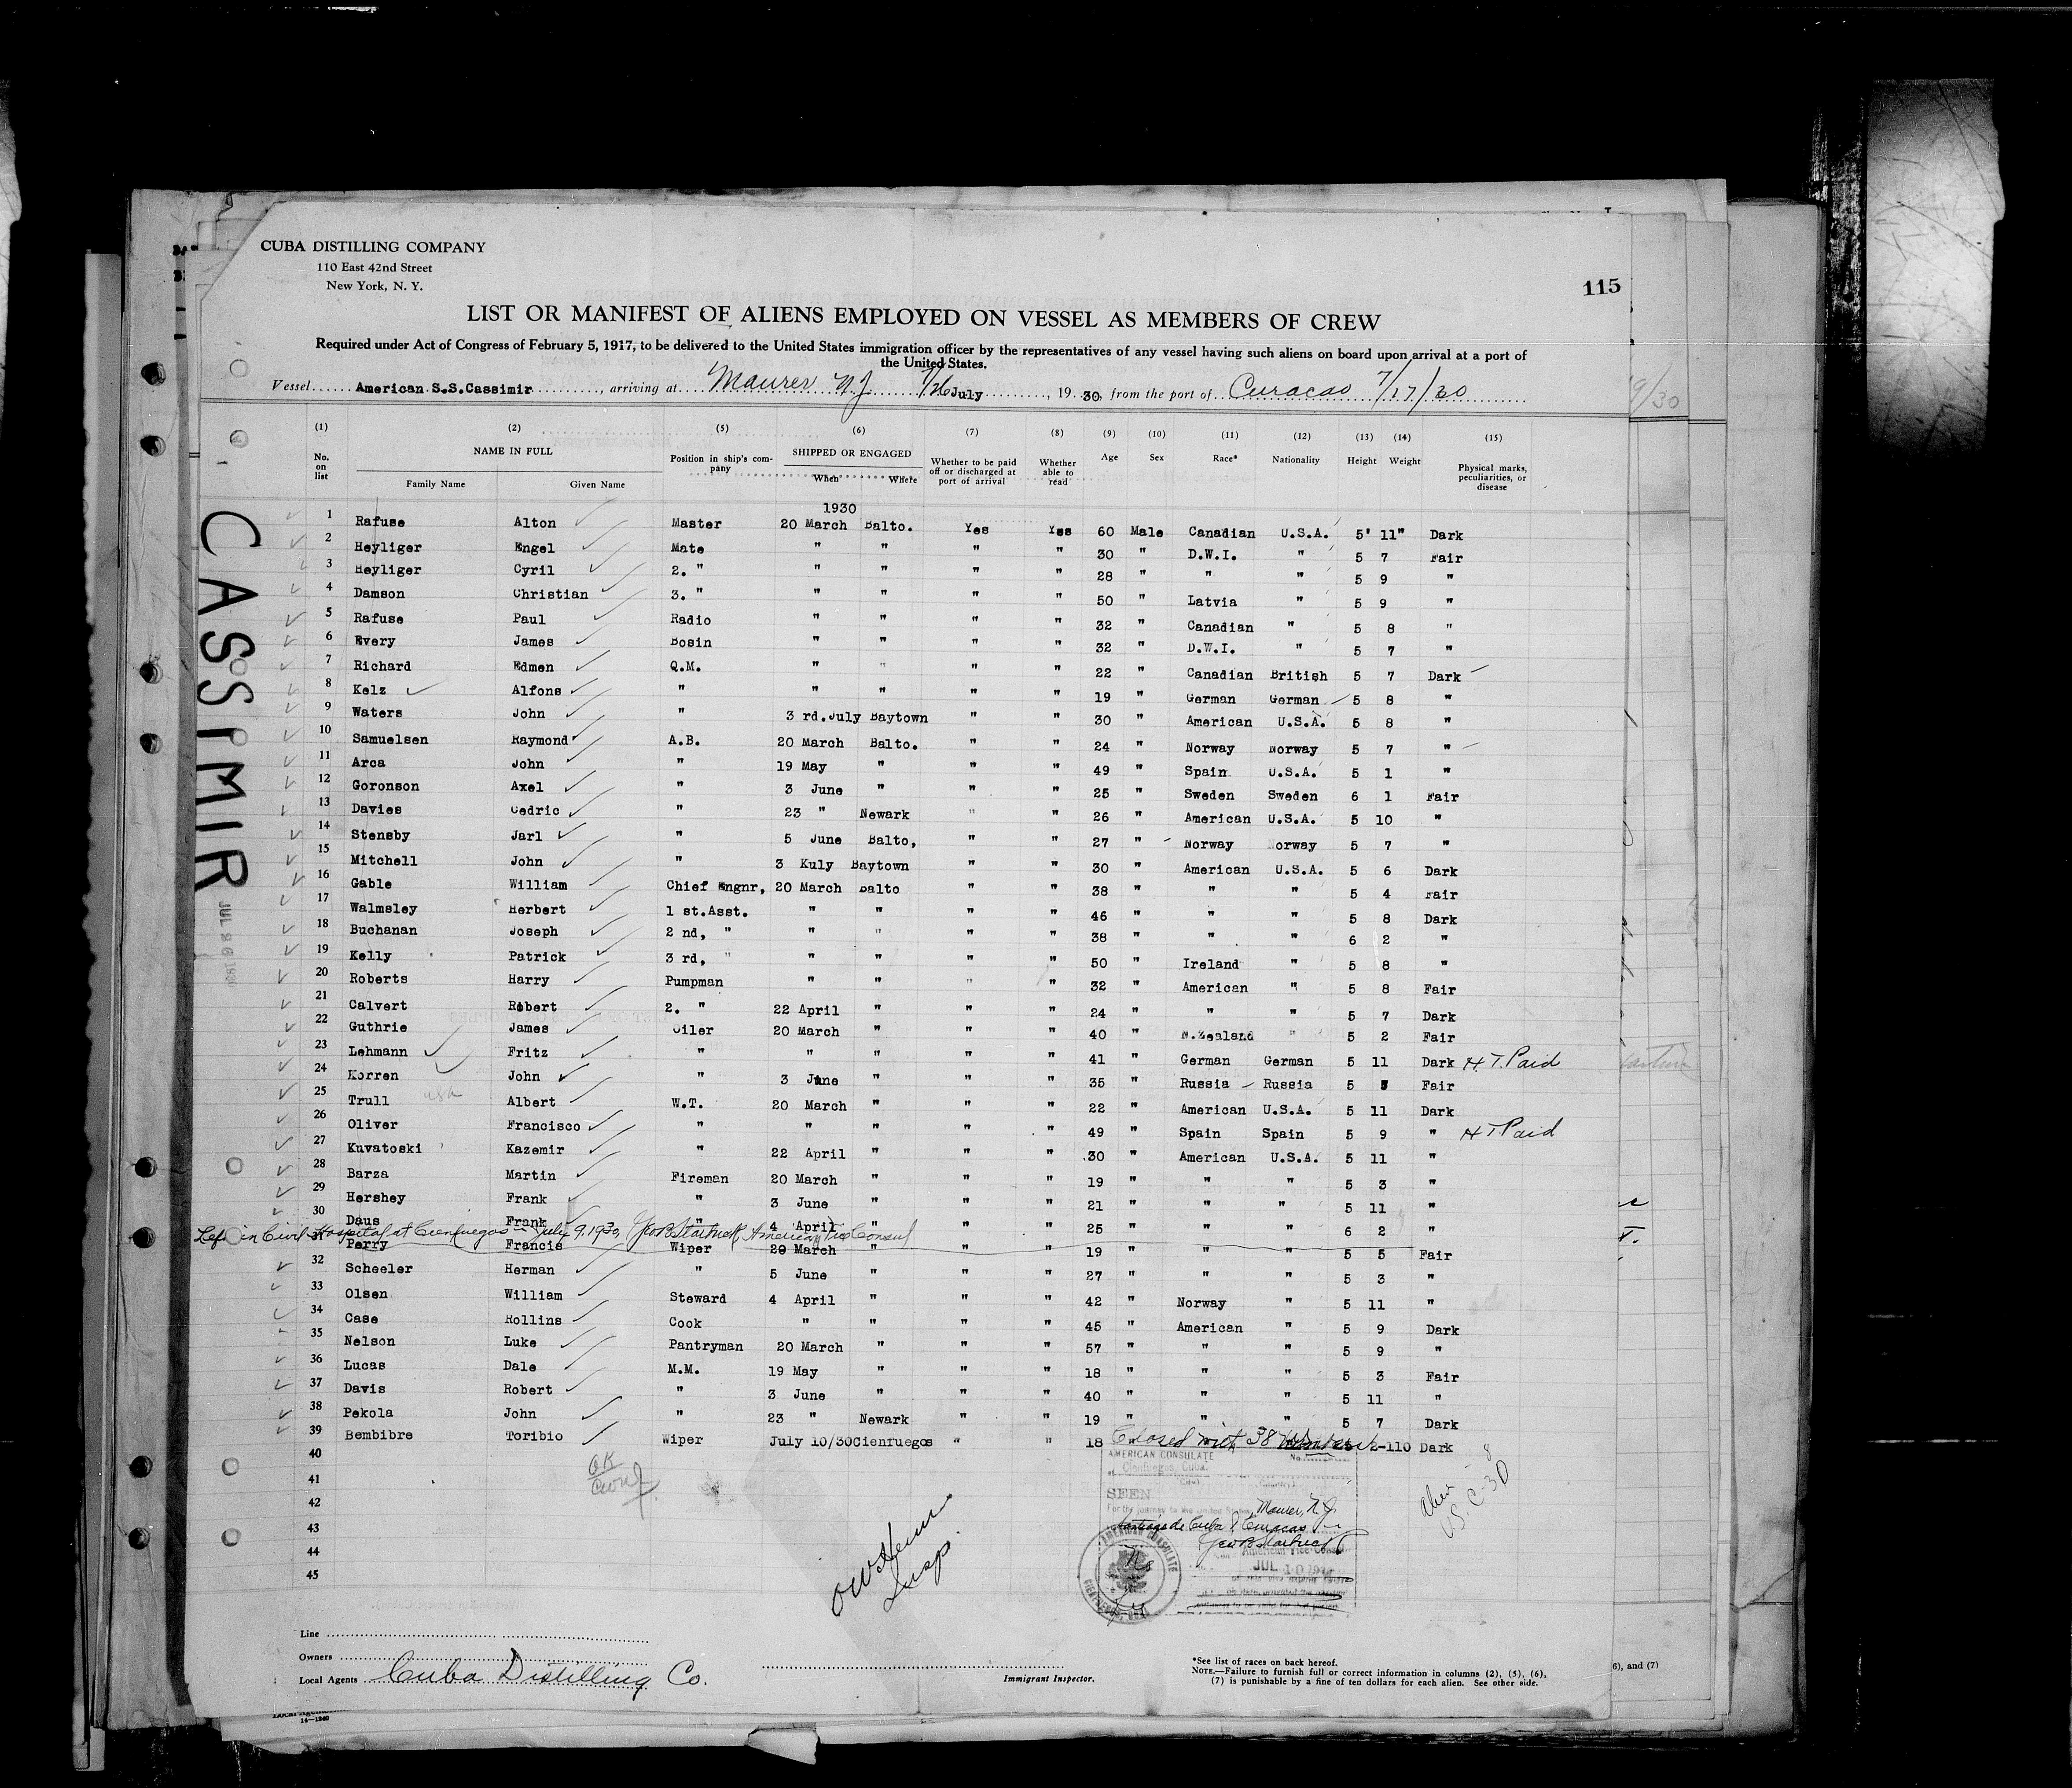 CUBA DISTILLING COMPANY
110 East 42nd Street
New York, N. Y.
115
LIST OR MANIFEST OF ALIENS EMPLOYED ON VESSEL AS MEMBERS OF CREW
Required under Act of Congress of February 5, 1917, to be delivered to the United States immigration officer by the representatives of any vessel having such aliens on board upon arrival at a port of
the United States.
Vessel American S.S.Cassimir, arriving at Maurer N.J. 7/26 July, 1930, from the port of Curacao 7/17/30
(1) (2) (5) (6) (7) (8) (9) (10) (11) (12) (13) (14) (15)
No. on list NAME IN FULL Family Name Given Name Position in ship's company SHIPPED OR ENGAGED When Where Whether to be paid off or discharged at port of arrival Whether able to read Age Sex Race* Nationality Height Weight Physical marks, peculiarities, or disease
1930
1 Rafuse Alton Master 20 March Balto. Yes Yes 60 Male Canadian U.S.A. 5' 11" Dark
2 Heyliger Engel Mate " " " " 30 " D.W.I. " 5 7 Fair
3 Heyliger Cyril 2. " " " " " 28 " " " 5 9 "
4 Damson Christian 3. " " " " " 50 " Latvia " 5 9 "
5 Rafuse Paul Radio " " " " 32 " Canadian " 5 8 "
6 Every James Bosin " " " " 32 " D.W.I. " 5 7 "
7 Richard Edmen Q.M. " " " " 22 " Canadian British 5 7 Dark
8 Kelz Alfons " " " " " 19 " German German 5 8 "
9 Waters John " 3 rd.July Baytown " " 30 " American U.S.A. 5 8 "
10 Samuelsen Raymond A.B. 20 March Balto. " " 24 " Norway Norway 5 7 "
11 Arca John " 19 May " " " 49 " Spain U.S.A. 5 1 "
12 Goronson Axel " 3 June " " " 25 " Sweden Sweden 6 1 Fair
13 Davies Cedric " 23 " Newark " " 26 " American U.S.A. 5 10 "
14 Stensby Jarl " 5 June Balto, " " 27 " Norway Norway 5 7 "
15 Mitchell John " 3 Kuly Baytown " " 30 " American U.S.A. 5 6 Dark
16 Gable William Chief Engnr, 20 March Balto " " 38 " " " 5 4 Fair
17 Walmsley Herbert 1 st.Asst. " " " " 46 " " " 5 8 Dark
18 Buchanan Joseph 2 nd, " " " " " 38 " " " 6 2 "
19 Kelly Patrick 3 rd, " " " " " 50 " Ireland " 5 8 "
20 Roberts Harry Pumpman " " " " 32 " American " 5 8 Fair
21 Calvert Robert 2. " 22 April " " " 24 " " " 5 7 Dark
22 Guthrie James Oiler 20 March " " " 40 " N.Zealand " 5 2 Fair
23 Lehmann Fritz " " " " " 41 " German German 5 11 Dark H.T. Paid
24 Korren John " 3 June " " " 35 " Russia Russia 5 Fair
25 Trull usa Albert W.T. 20 March " " " 22 " American U.S.A. 5 11 Dark
26 Oliver Francisco " " " " " 49 " Spain Spain 5 9 " H.T. Paid
27 Kuvatoski Kazemir " 22 April " " " 30 " American U.S.A. 5 11 "
28 Barza Martin Fireman 20 March " " " 19 " " " 5 3 "
29 Hershey Frank " 3 June " " " 21 " " " 5 11 "
30 Daus Frank " 4 April " " " 25 " " " 6 2 "
Left in Civil Hospital at Cienfuegos July 9, 1930, Geo B Starbuck, American Vice Consul
31 Perry Francis Wiper 20 March " " " 19 " " " 5 5 Fair
32 Scheeler Herman " 5 June " " " 27 " " " 5 3 "
33 Olsen William Steward 4 April " " " 42 " Norway " 5 11 "
34 Case Rollins Cook " " " " 45 " American " 5 9 Dark
35 Nelson Luke Pantryman 20 March " " " 57 " " " 5 9 "
36 Lucas Dale M.M. 19 May " " " 18 " " " 5 3 Fair
37 Davis Robert " 3 June " " " 40 " " " 5 11 "
38 Pekola John " 23 " Newark " " 19 " " " 5 7 Dark
39 Bembibre Toribio Wiper July 10/30 Cienfuegos " " 18 -110 Dark
Closed with 38
40
41
42
43
44
45
OK
AMERICAN CONSULATE
at Cienfuegos, Cuba.
SEEN
For the journey to the United States, Maurer, N.J.
Santiago de Cuba & Curacao
Geo B Starbuck
American Vice Consul
JUL 10 1930
AMERICAN CONSULATE
CIENFUEGOS, CUBA
Insp.
CASSIMIR
JUL 26 1930
Line
Owners
Local Agents Cuba Distilling Co.
Immigrant Inspector.
*See list of races on back hereof.
NOTE.—Failure to furnish full or correct information in columns (2), (5), (6),
(7) is punishable by a fine of ten dollars for each alien. See other side.
6), and (7)
14—1240
9/30